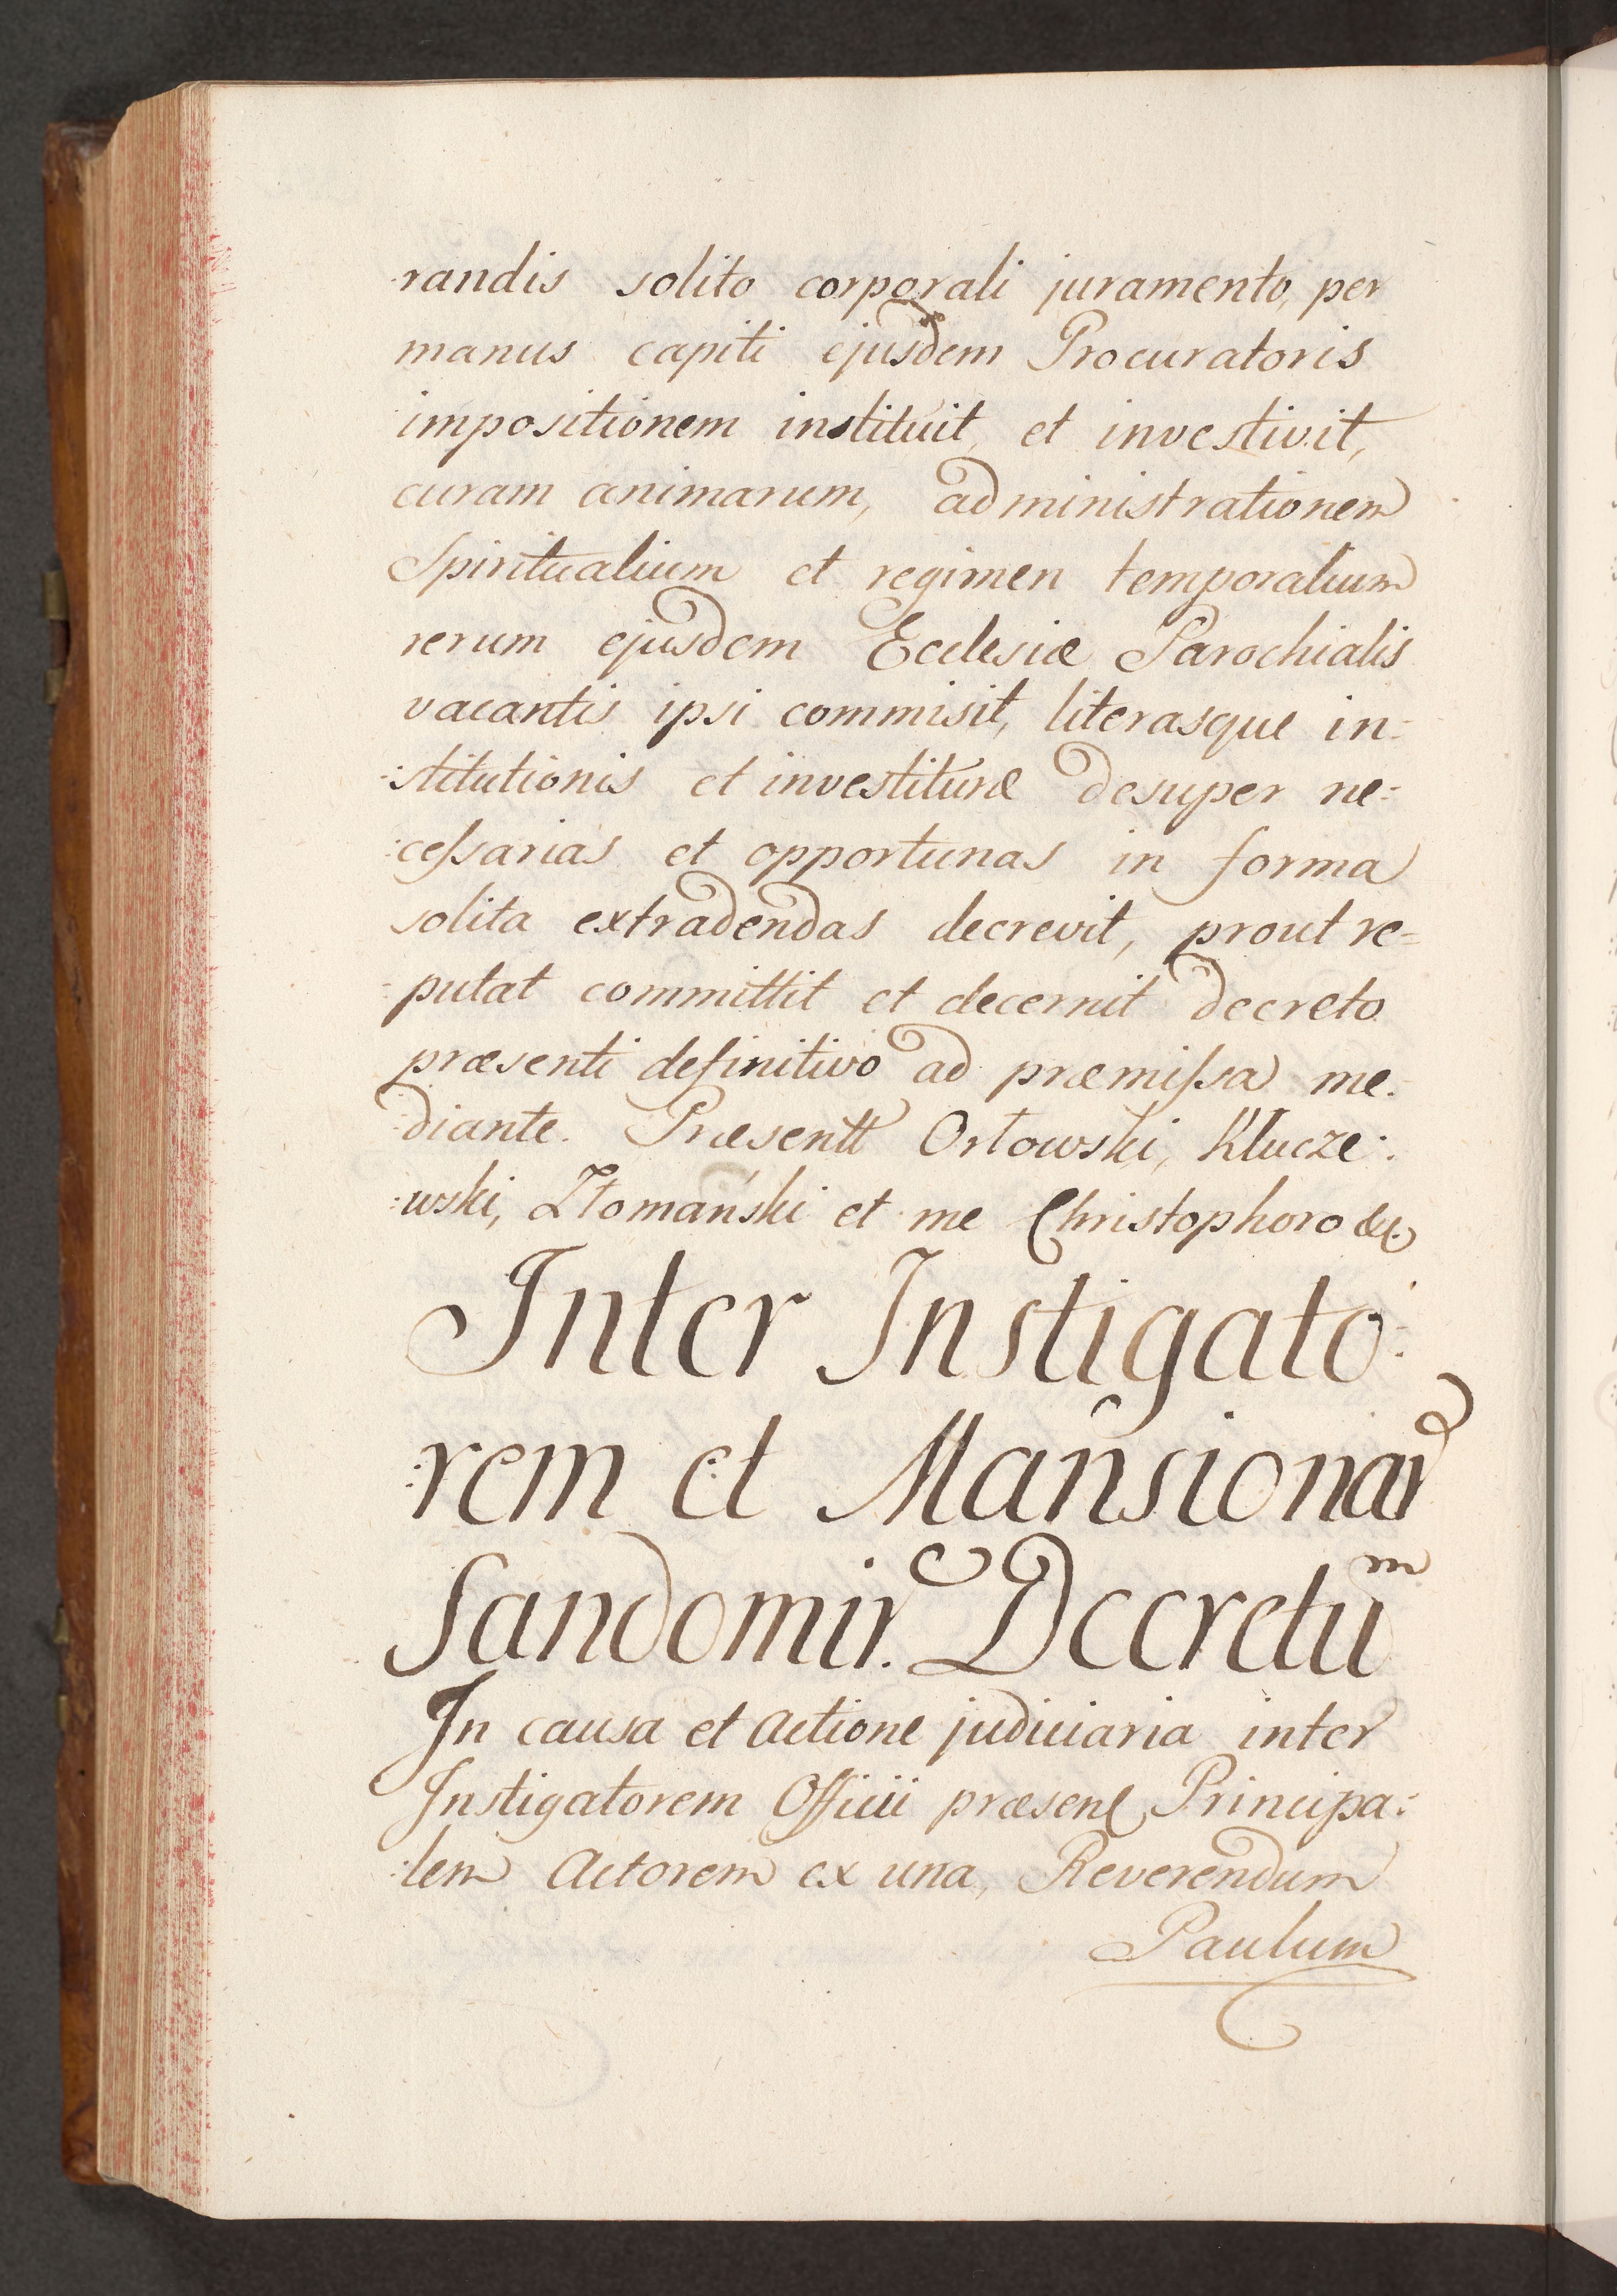 randis solito corporali juramento, per
manus capiti ejusdem Procuratoris
impositionem instituit, et investivit,
curam animarum, administrationem
Spiritualium et regimen temporalium
rerum ejusdem Ecclesiæ Parochialis
vacantis ipsi commisit, literasque in=
:stitutionis et investituræ desuper ne=
:ceſsarias et opportunas in forma
solita extradendas decrevit, prout re=
=putat committit et decernit decreto
præsenti definitivo ad præmiſsa me:
:diante. Præsentt Orłowski, Klucze:
:wski, Złomański et me Christophoro &c.
Inter Instigato:
:rem et Mansionar
Sandomir. Decretũm
In causa et Actione judiciaria inter
Instigatorem Officii præsen Principa:
:lem Actorem ex una, Reverendum
Paulum